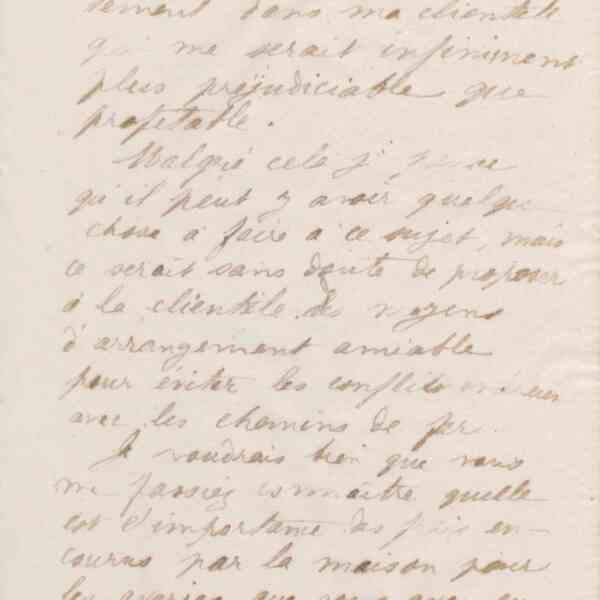 tement dans ma clientèle
qui me serait infiniment
plus préjudiciable que
profitable.
Malgré cela j'pense
qu'il peut y avoir quelque
chose à faire à ce sujet, mais
ce serait sans doute de proposer
à la clientèle des moyens
d'arrangement amiable
pour éviter les conflits
avec les chemins de fer.
Je voudrais bien que vous
me fassiez connaître quelle
est d'importance des frais en-
courus par la maison pour
les avaries que vous avez eu